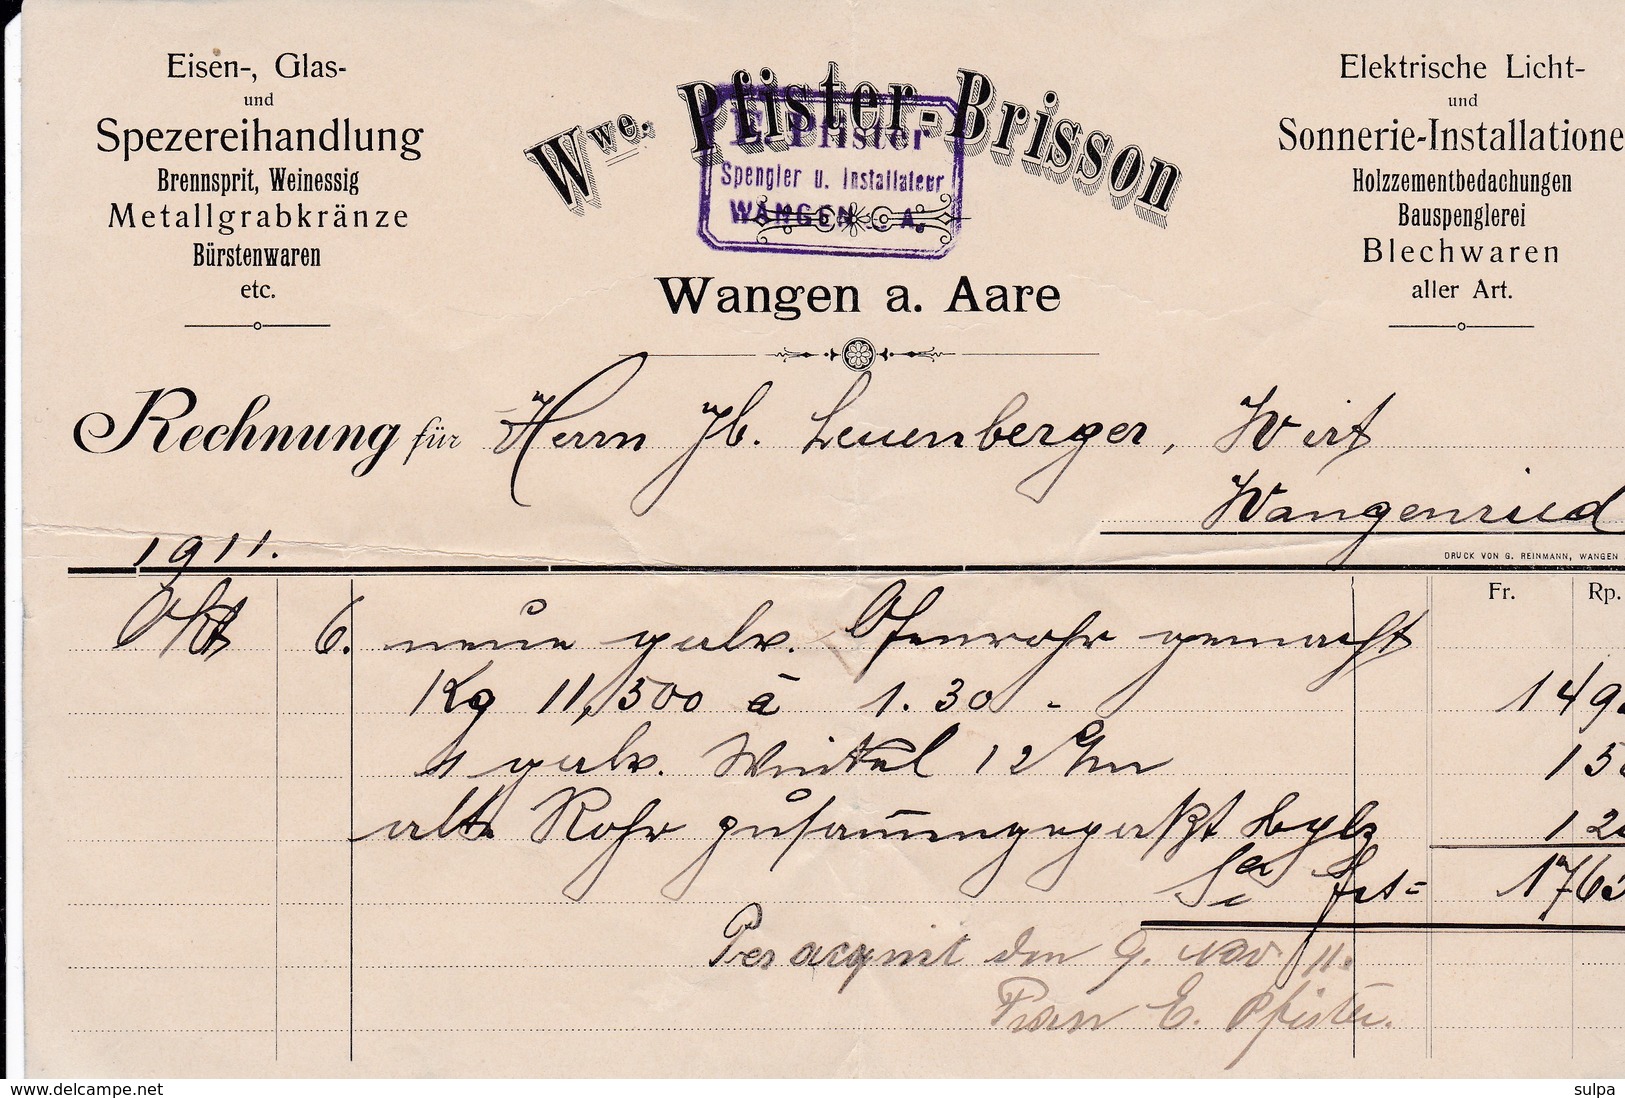 Eisen-, Glas-
und
Spezereihandlung
Brennsprit, Weinessig
Metallgrabkränze
Bürstenwaren
etc.
Wwe. Pfister-Brisson
E. Pfister
Spengler u. Installateur
WANGEN a. A.
Wangen a. Aare
Elektrische Licht-
und
Sonnerie-Installatione
Holzzementbedachungen
Bauspenglerei
Blechwaren
aller Art.
Rechnung für Herrn Jb. Leuenberger, Wirt
Wangenried
1911.
DRUCK VON G. REINMANN, WANGEN
Fr. Rp.
Okt 6. neue galv. Ofenrohr gemacht
Kg 11,500 à 1.30 - 149
1 galv. Winkel 12 c/m 15
alte Rohr zusammengepaßt 12
Sa frs= 176
Per acquit den 9. Nov. 11.
E. Pfister.
www.delcampe.net
sulpa